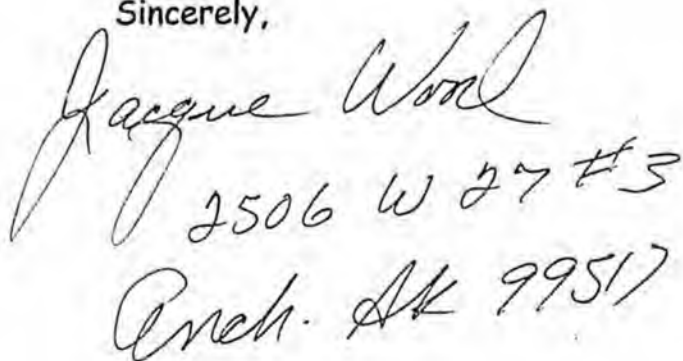 Sincerely,
Jacque Wood
2506 W 27 #3
Anch. AK 99517